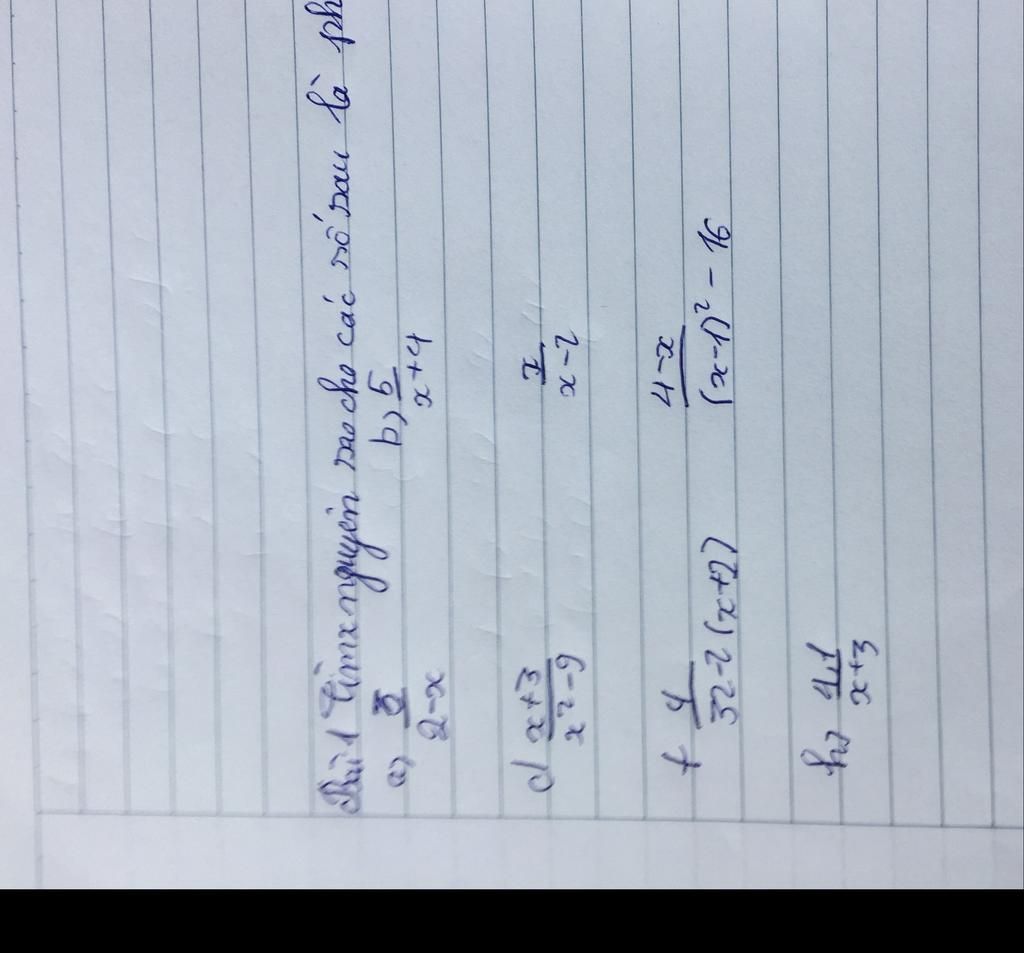 Bài 1 Tìm x nguyên sao cho các số sau là ph
a) 3/(2-x) b) 5/(x+4)
c) (x+3)/(x²-9) 7/(x-2)
f 4/(32-2(x+2)) (4-x)/((x-1)²-16)
h) 4,1/(x+3)